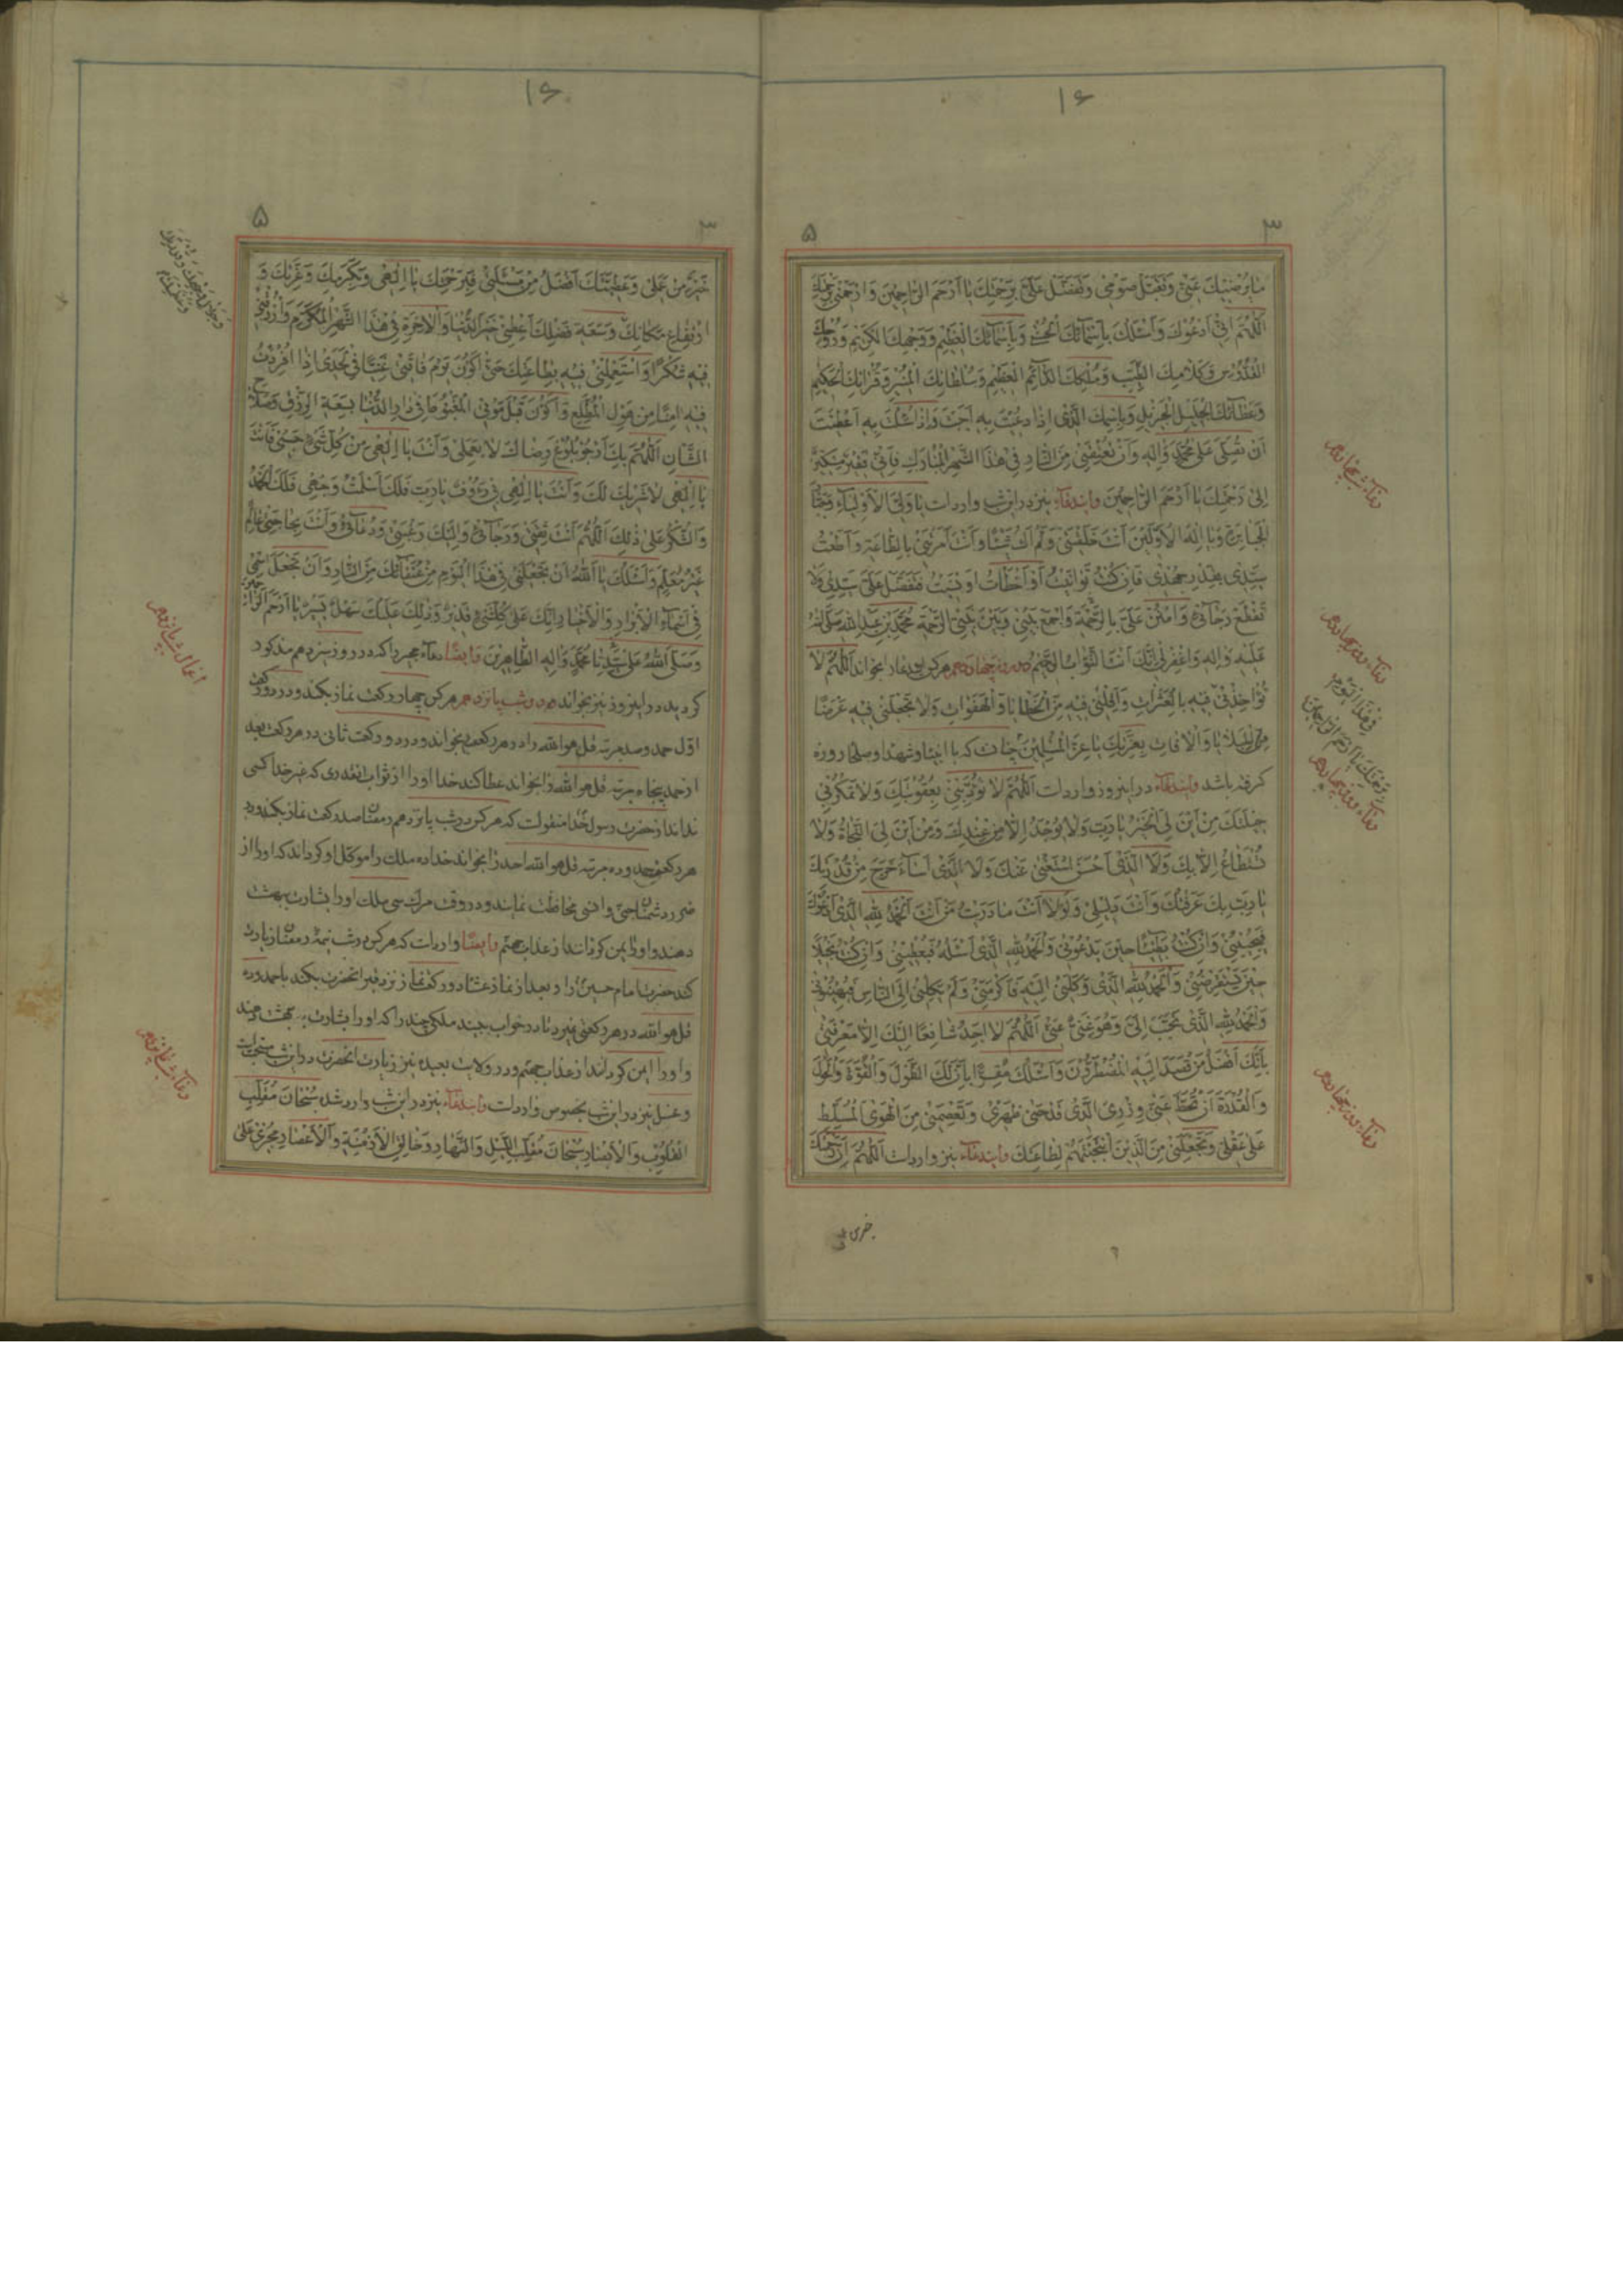 ۱۶
۳
۵
ما یُرْضیكَ عَنّی وَتَقَبَّلْ صَوْمی وَتَفَضَّلْ عَلَیَّ بِرَحْمَتِكَ یا اَرْحَمَ الرّاحِمینَ وَارْحَمْنی
اَللّهُمَّ اِنّی اَدْعُوكَ وَاَسْئَلُكَ بِاَسْمائِكَ الْحُسْنى وَبِاَسْمائِكَ الْعَظیمِ وَوَجْهِكَ الْكَریمِ وَرُوحِكَ
الْقُدُّوسِ وَكَلامِكَ الطَّیِّبِ وَمُلْكِكَ الدّائِمِ الْعَظیمِ وَسُلْطانِكَ الْمُنیرِ وَقُرْانِكَ الْحَكیمِ
وَعَطائِكَ الْجَلیلِ الْجَزیلِ وَبِاسْمِكَ الَّذی اِذا دُعیتَ بِهِ اَجَبْتَ وَاِذا سُئِلْتَ بِهِ اَعْطَیْتَ
اَنْ تُصَلِّیَ عَلى مُحَمَّدٍ وَالِهِ وَاَنْ تُعْتِقَنی مِنَ النّارِ فی هذَا الشَّهْرِ الْمُبارَكِ فَاِنّی فَقیرٌ مِسْكینٌ
اِلى رَحْمَتِكَ یا اَرْحَمَ الرّاحِمینَ وایندعآء نیز در این شب وارداست یا وَلِیَّ الْاَوْلِیآءِ
الْجَبابِرَةِ وَیا اِلهَ الْاَوَّلینَ اَنْتَ خَلَقْتَنی وَلَمْ اَكُ شَیْئًا وَاَنْتَ اَمَرْتَنی بِالطّاعَةِ وَاَطَعْتُ
سَیِّدی بِقَدْرِ جُهْدی فَاِنْ كُنْتُ تَوانَیْتُ اَوْ اَخْطَأْتُ اَوْ نَسیتُ فَتَفَضَّلْ عَلَیَّ سَیِّدی وَلا
تَقْطَعْ رَجائی وَامْنُنْ عَلَیَّ بِالرَّحْمَةِ وَاجْمَعْ بَیْنی وَبَیْنَ نَبِیِّ الرَّحْمَةِ مُحَمَّدِ بْنِ عَبْدِاللهِ صَلَّى اللهُ
عَلَیْهِ وَالِهِ وَاغْفِرْ لی اِنَّكَ اَنْتَ التَّوّابُ الرَّحیمُ در روز چهاردهم هركس این دعا را بخواند اَللّهُمَّ لا
تُؤاخِذْنی فیهِ بِالْعَثَراتِ وَاَقِلْنی فیهِ مِنَ الْخَطایا وَالْهَفَواتِ وَلا تَجْعَلْنی فیهِ غَرَضًا
لِلْبَلایا وَالْافاتِ بِعِزَّتِكَ یا عِزَّ الْمُسْلِمینَ چنانست كه با انبیا و شهدا و صلحا روزه
گرفته باشد وایندعآء در اینروز وارداست اَللّهُمَّ لا تُؤَدِّبْنی بِعُقُوبَتِكَ وَلا تَمْكُرْ بی
حیلَتِكَ مِنْ اَیْنَ لِیَ الْخَیْرُ یا رَبِّ وَلا یُوجَدُ اِلّا مِنْ عِنْدِكَ وَمِنْ اَیْنَ لِیَ النَّجاةُ وَلا
تُسْتَطاعُ اِلّا بِكَ وَلَا الَّذی اَحْسَنَ اسْتَغْنى عَنْكَ وَلَا الَّذی اَسآءَ خَرَجَ مِنْ قُدْرَتِكَ
یا رَبِّ بِكَ عَرَفْتُكَ وَاَنْتَ دَلیلی وَلَوْلا اَنْتَ ما دَرَیْتُ مَنْ اَنْتَ اَلْحَمْدُ لِلّهِ الَّذی اَدْعُوهُ
فَیُجیبُنی وَاِنْ كُنْتُ بَطیئًا حینَ یَدْعُونی وَالْحَمْدُ لِلّهِ الَّذی اَسْئَلُهُ فَیُعْطینی وَاِنْ كُنْتُ بَخیلًا
حینَ یَسْتَقْرِضُنی وَالْحَمْدُ لِلّهِ الَّذی وَكَلَنی اِلَیْهِ فَاَكْرَمَنی وَلَمْ یَكِلْنی اِلَى النّاسِ فَیُهینُونی
وَالْحَمْدُ لِلّهِ الَّذی تَحَبَّبَ اِلَیَّ وَهُوَ غَنِیٌّ عَنّی اَللّهُمَّ لا اَجِدُ شافِعًا اِلَیْكَ اِلّا مَعْرِفَتی
بِاَنَّكَ اَفْضَلُ مَنْ قَصَدَ اِلَیْهِ الْمُضْطَرُّونَ وَاَسْئَلُكَ مُقِرًّا بِاَنَّ لَكَ الطَّوْلَ وَالْقُوَّةَ وَالْحَوْلَ
وَالْقُدْرَةَ اَنْ تَحُطَّ عَنّی وِزْرِیَ الَّذی قَدْ حَنى ظَهْری وَتَعْصِمَنی مِنَ الْهَوَى الْمُسَلَّطِ
عَلى عَقْلی وَتَجْعَلَنی مِنَ الَّذینَ انْتَجَبْتَهُمْ لِطاعَتِكَ وایندعآء نیز وارداست اَللّهُمَّ اِنَّ رَحْمَتَكَ
دعآء شب چهاردهم
دعآء روز چهاردهم
فی هذا الیوم
دعآء روز چهاردهم
دعآء روز چهاردهم
۱۶
۳
۵
خَیْرٌ مِنْ عَمَلی وَعَطِیَّتَكَ اَفْضَلُ مِنْ مَسْئَلَتی فَبِرَحْمَتِكَ یا اِلهی وَبِكَرَمِكَ وَعِزَّتِكَ وَ
ارْتِفاعِ مَكانِكَ وَسَعَةِ فَضْلِكَ اَعْطِنی خَیْرَ الدُّنْیا وَالْاخِرَةِ فی هذَا الشَّهْرِ الْمُكَرَّمِ وَارْزُقْنی
فیهِ شُكْرًا وَاسْتَعْمِلْنی فیهِ بِطاعَتِكَ حَتّى اَكُونَ یَوْمَ فاقَتی غَنِیًّا فی لَحَدی اِذا اُفْرِدْتُ
فیهِ امِنًا مِنْ هَوْلِ الْمُطَّلَعِ وَاَكُونَ قَبْلَ مَوْتی الْمَغْبُوطَ فی دارِ الدُّنْیا بِسَعَةِ الرِّزْقِ وَصَلاحِ
الشَّأْنِ اَللّهُمَّ بِكَ اَرْجُو بُلُوغَ رِضاكَ لا بِعَمَلی وَاَنْتَ یا اِلهی مِنْ كُلِّ شَیْءٍ حَسْبی فَاَنْتَ
یا اِلهی لا شَریكَ لَكَ وَاَنْتَ یا اِلهی بی رَؤُفٌ یا رَبِّ فَلَكَ اَسْلَمْتُ وَجْهی فَلَكَ الْحَمْدُ
وَالشُّكْرُ عَلى ذلِكَ اَللّهُمَّ اَنْتَ ثِقَتی وَرَجائی وَاِلَیْكَ رَغْبَتی وَدُعائی وَاَنْتَ بِحاجَتی عالِمٌ
غَیْرُ مُعَلَّمٍ وَاَسْئَلُكَ یا اَللهُ اَنْ تَجْعَلَنی فی هذَا الْیَوْمِ مِنْ عُتَقائِكَ مِنَ النّارِ وَاَنْ تَجْعَلَ اسْمی
فی اَسْمآءِ الْاَبْرارِ وَالْاَخْیارِ اِنَّكَ عَلى كُلِّ شَیْءٍ قَدیرٌ وَذلِكَ عَلَیْكَ سَهْلٌ یَسیرٌ یا اَرْحَمَ الرّاحِمینَ
وَصَلَّى اللهُ عَلى سَیِّدِنا مُحَمَّدٍ وَالِهِ الطّاهِرینَ وایضًا دعآء مجیر را كه در روز سیزدهم مذكور
گردید در اینروز نیز بخواند در شب پانزدهم هركس چهار ركعت نماز بكند و در دو ركعت
اوّل حمد و صد مرتبه قل هو الله را در هر ركعت بخواند و در دو ركعت ثانی در هر ركعت بعد
از حمد پنجاه مرتبه قل هو الله را بخواند عطا كند خدا او را از ثواب انقدری كه غیر خدا كسی
نداند از حضرت رسول خدا منقولست كه هركس در شب پانزدهم رمضان صد ركعت نماز بكند و در
هر ركعت حمد و ده مرتبه قل هو الله احد را بخواند خدا ده ملك را موكّل او گرداند كه او را از
ضرر دشمنان جنّی و انسی محافظت نمایند و در وقت مرگ سی ملك او را بشارت بهشت
دهند و او را ایمن گردانند از عذاب جهنّم وایضًا وارداست كه هركس در شب نیمه رمضان زیارت
كند حضرت امام حسین را و بعد از نماز عشا ده ركعت نماز نزد قبر انحضرت بكند با حمد و ده
قل هو الله در هر ركعتی نمیرد تا در خواب ببیند ملكی چند را كه او را بشارت به بهشت دهند
و او را ایمن گردانند از عذاب جهنّم و در ولایت بعیده نیز زیارت انحضرت در این شب سنّت است
و غسل نیز در این شب بخصوص وارداست وایندعآء نیز در این شب وارد شده سُبْحانَ مُقَلِّبِ
الْقُلُوبِ وَالْاَبْصارِ سُبْحانَ مُقَلِّبِ اللَّیْلِ وَالنَّهارِ وَخالِقِ الْاَزْمِنَةِ وَالْاَعْصارِ مُجْری عَلى
اعمال شب پانزدهم
دعآء شب پانزدهم